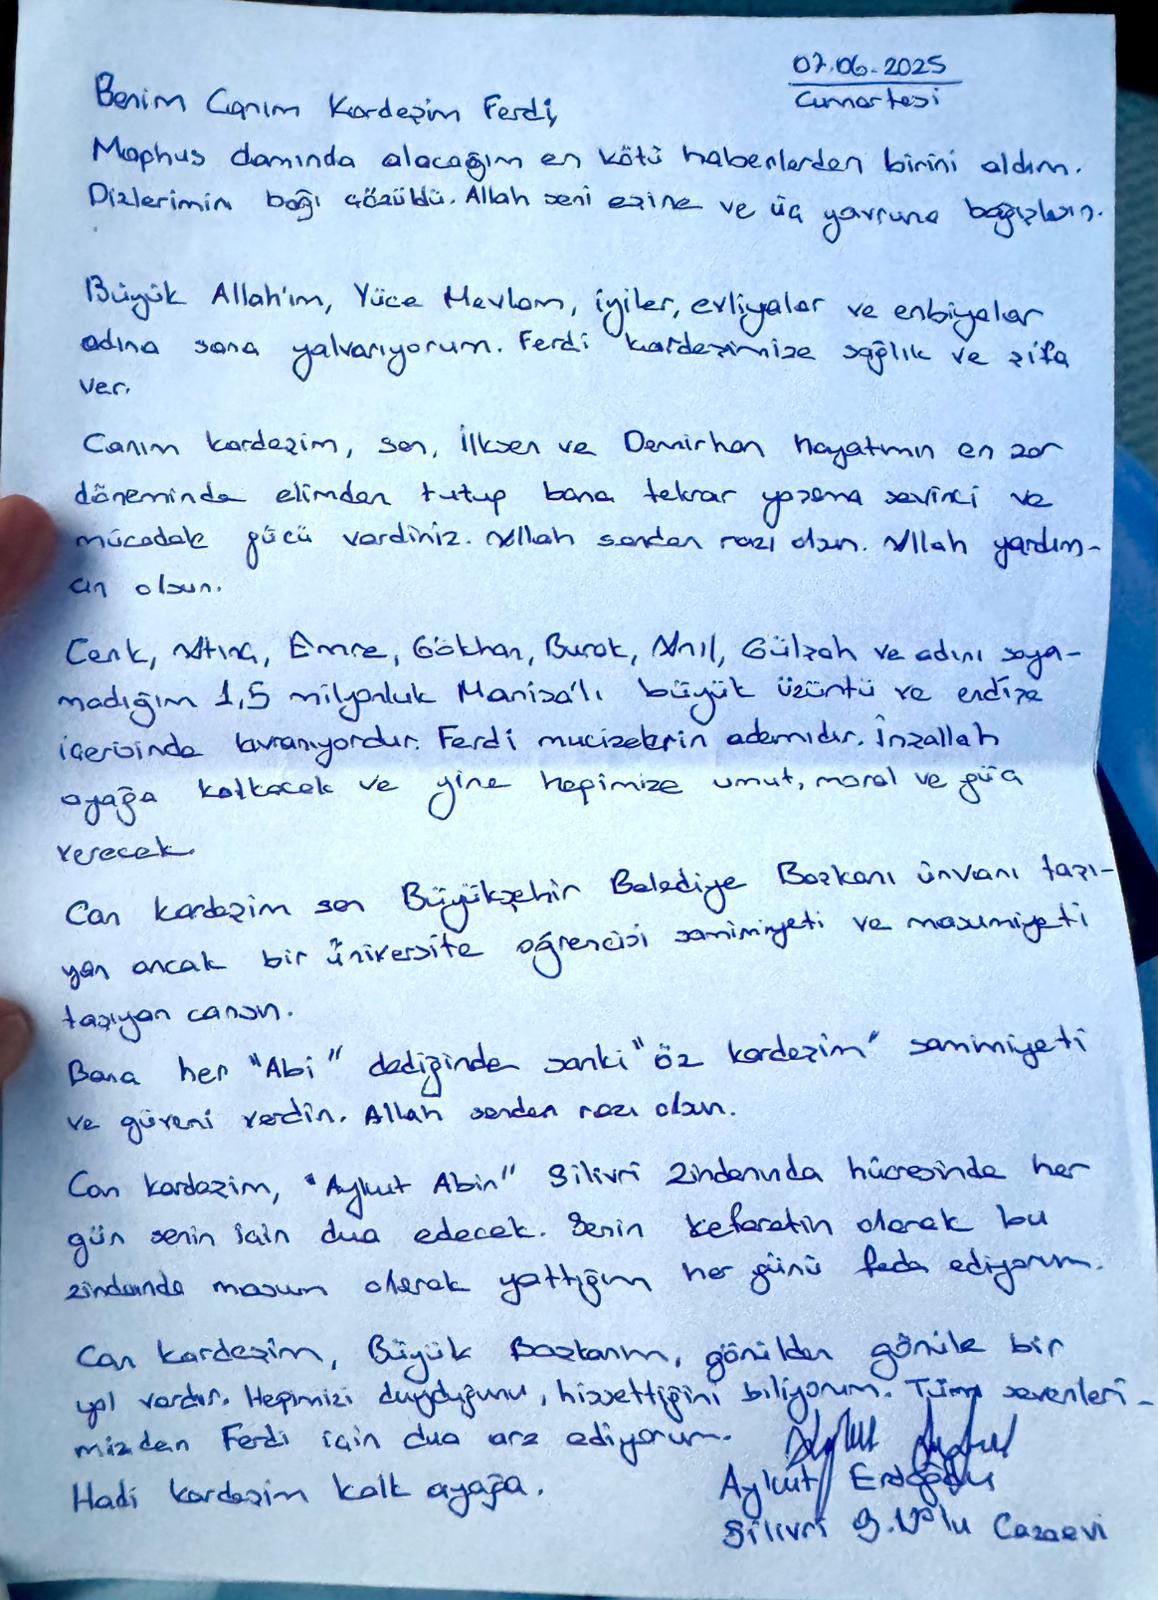 07.06.2025
Cumartesi
Benim Canım Kardeşim Ferdi,
Maphus damında alacağım en kötü haberlerden birini aldım.
Dizlerimin bağı çözüldü. Allah seni eşine ve üç yavruna bağışlasın.
Büyük Allah'ım, Yüce Mevlam, iyiler, evliyalar ve enbiyalar
adına sana yalvarıyorum. Ferdi kardeşimize sağlık ve şifa
ver.
Canım kardeşim, sen, İlksen ve Demirhan hayatımın en zor
döneminde elimden tutup bana tekrar yaşama sevinci ve
mücadele gücü verdiniz. Allah senden razı olsun. Allah yardım-
cın olsun.
Cenk, Altınç, Emre, Gökhan, Burak, Anıl, Gülşah ve adını saya-
madığım 1,5 milyonluk Manisa'lı büyük üzüntü ve endişe
içerisinde kıvranıyordur. Ferdi mucizelerin adamıdır. İnşallah
ayağa kalkacak ve yine hepimize umut, moral ve güç
verecek.
Can kardeşim sen Büyükşehir Belediye Başkanı ünvanı taşı-
yan ancak bir üniversite öğrencisi samimiyeti ve masumiyeti
taşıyan cansın.
Bana her "Abi" dediğinden sanki "öz kardeşim" samimiyeti
ve güveni verdin. Allah senden razı olsun.
Can kardeşim, "Aykut Abin" Silivri zindanında hücresinde her
gün senin için dua edecek. Senin kefaretin olarak bu
zindanda masum olarak yattığım her günü feda ediyorum.
Can kardeşim, Büyük Başkanım, gönülden gönüle bir
yol vardır. Hepimizi duyduğunu, hissettiğini biliyorum. Tüm sevenleri-
mizden Ferdi için dua arz ediyorum.
Hadi kardeşim kalk ayağa.
Aykut Erdoğdu
Silivri 9. No'lu Cezaevi